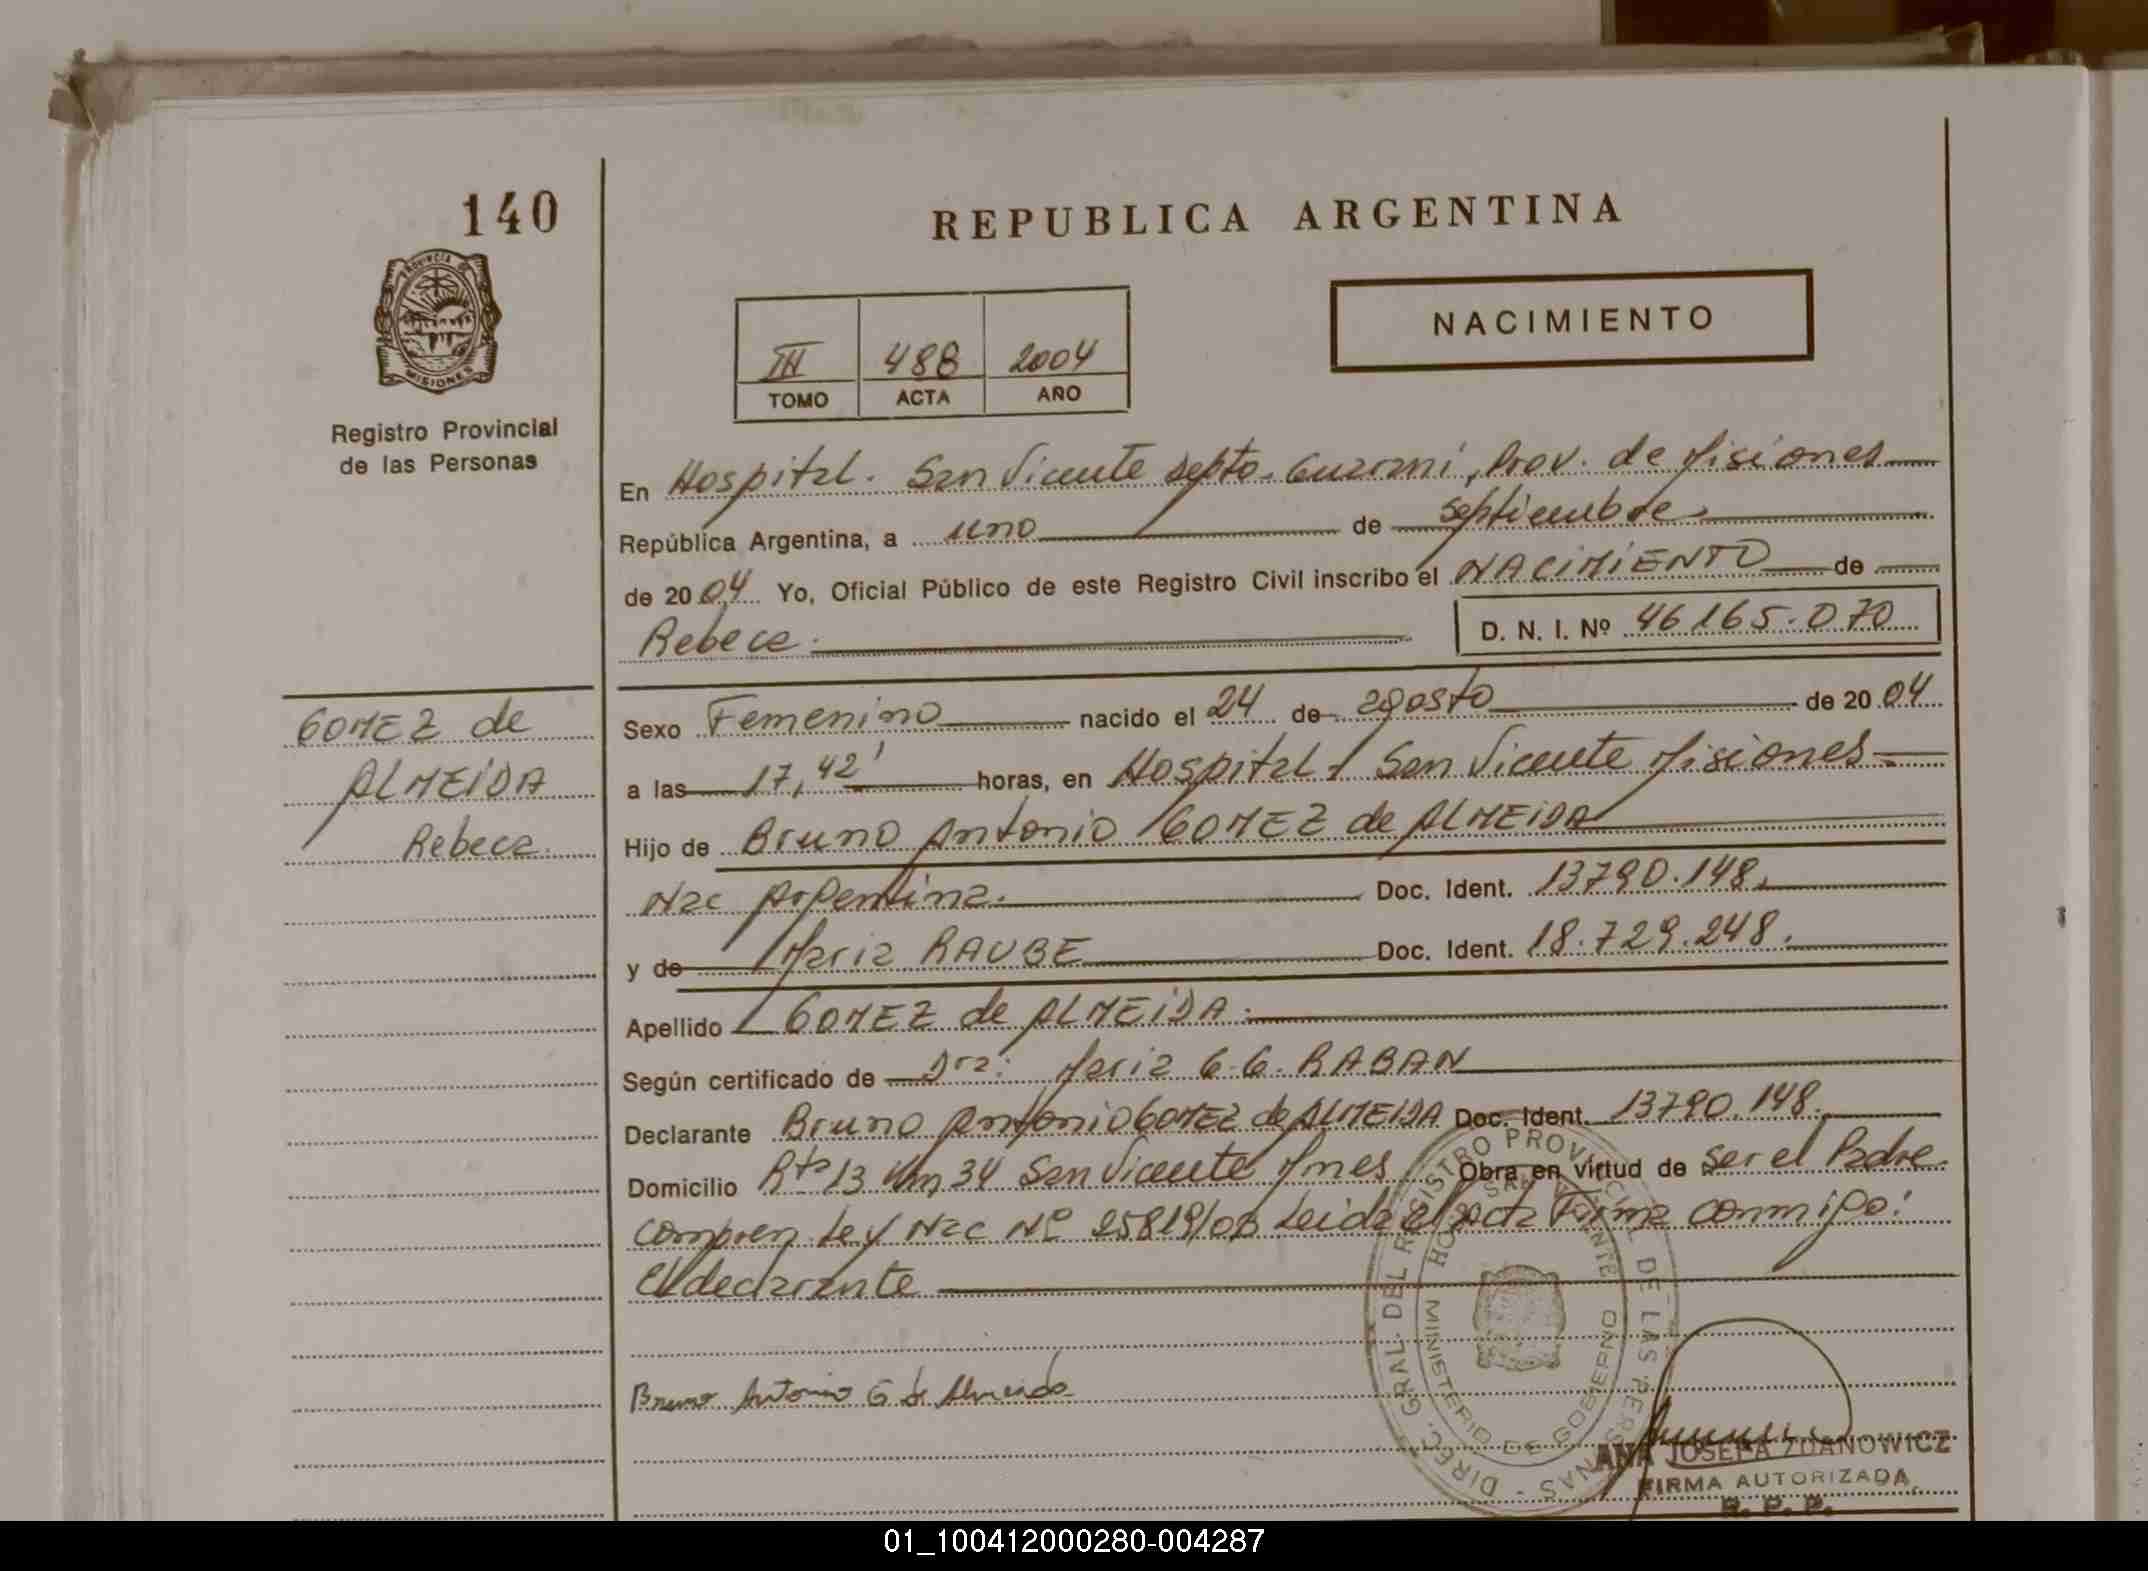 140
REPUBLICA ARGENTINA
PROVINCIA DE
MISIONES
Registro Provincial
de las Personas
NACIMIENTO
III 488 2004
TOMO ACTA AÑO
En Hospital. San Vicente Depto. Guaraní, Prov. de Misiones
República Argentina, a uno de septiembre
de 2004 Yo, Oficial Público de este Registro Civil inscribo el NACIMIENTO de
Rebeca. D. N. I. Nº 46165.070
GOMEZ de
ALMEIDA
Rebeca.
Sexo Femenino nacido el 24 de agosto de 2004
a las 17,42' horas, en Hospital San Vicente Misiones
Hijo de Bruno Antonio GOMEZ de ALMEIDA
Nac Argentina. Doc. Ident. 13790.148.
y de Maria RAUBE Doc. Ident. 18.729.248.
Apellido GOMEZ de ALMEIDA
Según certificado de Dra: Maria G.G. RABAN
Declarante Bruno Antonio GOMEZ de ALMEIDA Doc. Ident. 13790.148.
Domicilio Rta 13 Km 34 San Vicente Mnes Obra en virtud de ser el Padre
compren Ley Nac Nº 25819/03 Leida el acta Firma conmigo:
El declarante
Bruno Antonio G de Almeida
DIREC. GRAL. DEL REGISTRO PROVINCIAL DE LAS PERSONAS -
MINISTERIO DE GOBIERNO
ANA JOSEFA ZDANOWICZ
FIRMA AUTORIZADA
R. P. P.
01_100412000280-004287